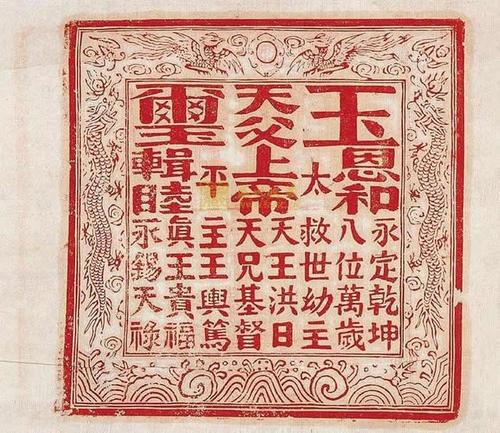 玉
天父上帝
璽
恩和
太
平
輯睦
永定乾坤
八位萬歲
救世幼主
天王洪日
天兄基督
主王輿篤
真王貴福
永錫天祿